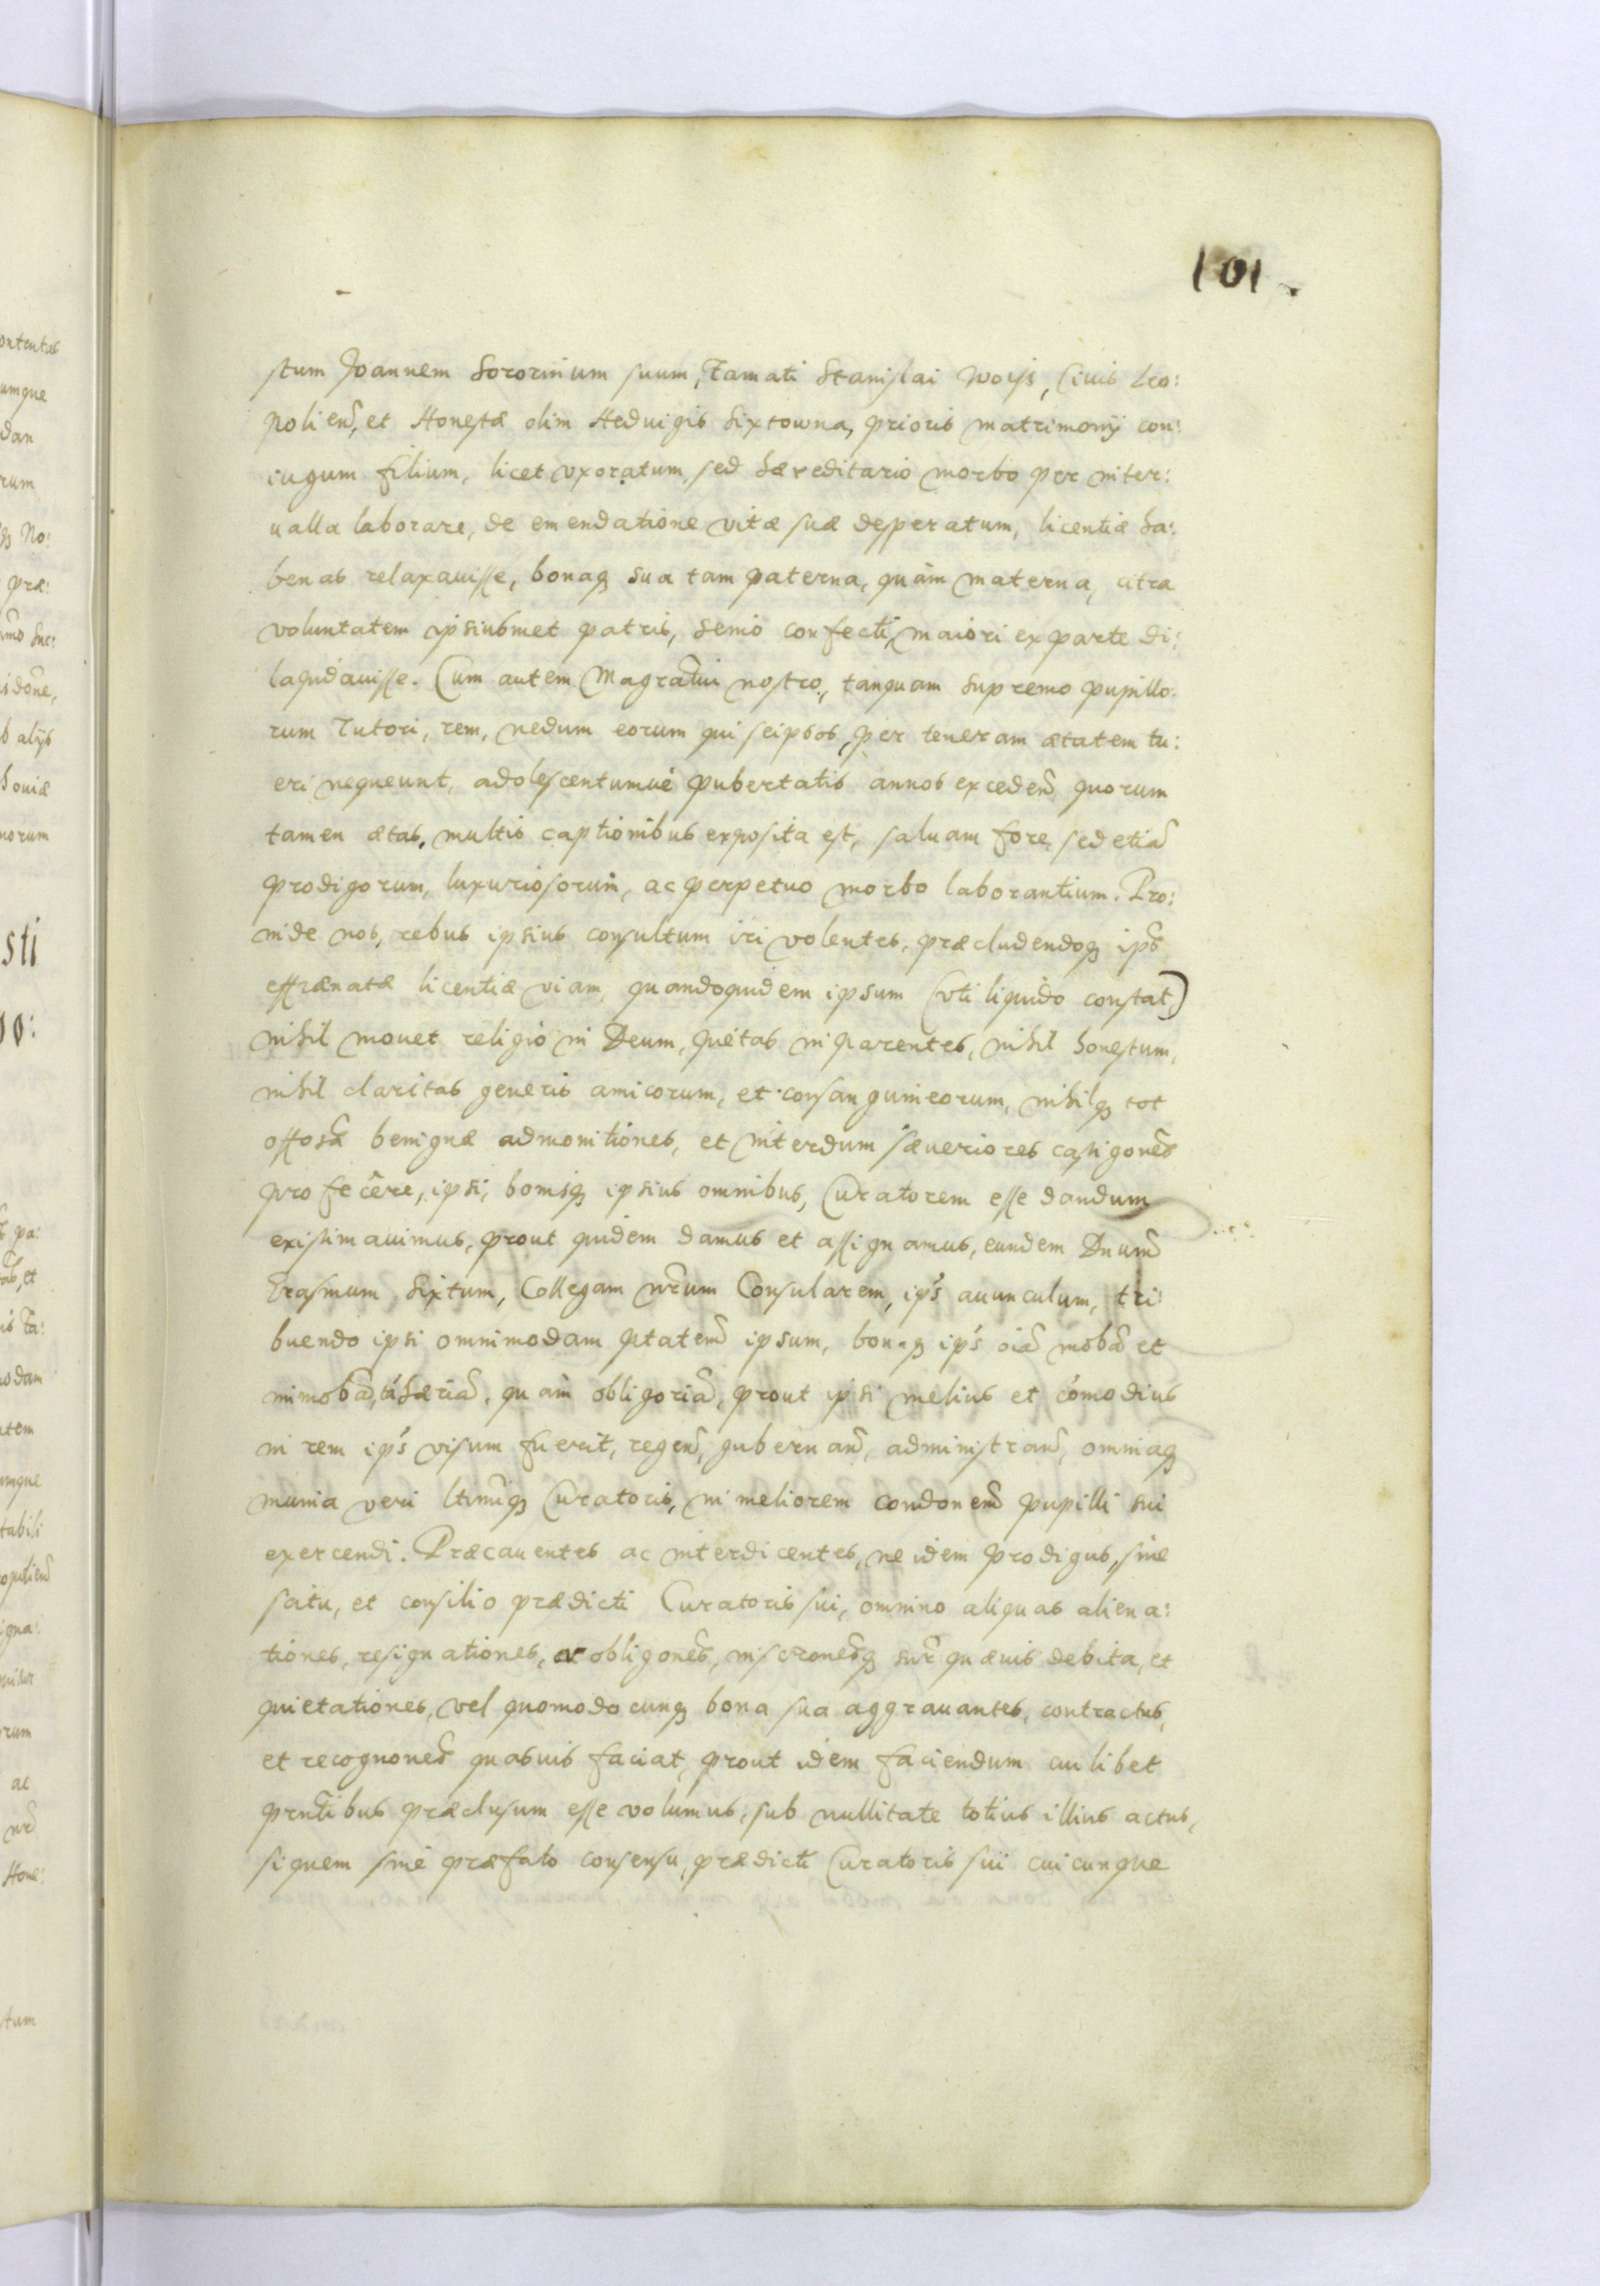 101.
stum Joannem Sororinum suum, Famati Stanislai Woys, Ciuis Leo:
polien̄, et Honestæ olim Heduigis Sixtowna, prioris matrimonÿ con:
iugum filium, licet vxoratum, sed hæreditario morbo per inter:
ualla laborare, de emendatione vitæ suæ desperatum, licentiæ ha:
benas relaxauisse, bonaq; sua tam paterna, quàm materna, citra
voluntatem ipsiusmet patris, senio confecti, maiori ex parte di:
lapidauisse. Cum autem Magratui nostro, tanquam supremo pupillo:
rum Tutori, rem, nedum eorum qui seipsos, per teneram ætatem tu:
eri nequeunt, adolescentumuè pubertatis annos exceden̄ quorum
tamen ætas, multis captionibus exposita est, saluam fore, sed etiā
prodigorum, luxuriosorum, ac perpetuo morbo laborantium. Pro:
inde nos, rebus ipsius consultum iri volentes, præcludendoq; ips̄
effrænatæ licentiæ viam, quandoquidem ipsum (vti liquido constat)
nihil mouet religio in Deum, pietas in parentes, nihil honestum,
nihil claritas generis amicorum, et consanguineorum, nihilq; tot
benignæ admonitiones, et interdum sæueriores castigones̄
profecêre, ipsi, bonisq; ipsius omnibus, Curatorem esse dandum
existimauimus, prout quidem damus et assignamus, eundem Dnum̄
Erasmum Sixtum, Collegam nr̄um Consularem, ips̄ auunculum, tri:
buendo ipsi omnimodam ptatem̄ ipsum, bonaq; ips̄ oiā mobā et
immobā, tā hæriā, quàm obligoriā, prout ipsi melius et cōmodius
in rem ips̄ visum fuerit, regen̄, gubernan̄, administran̄, omniaq;
munia veri ltimiq; Curatoris, in meliorem condonem̄ pupilli sui
exercendi. Præcauentes ac interdicentes, ne idem prodigus, sine
scitu, et consilio prædicti Curatoris sui, omnino aliquas aliena:
tiones, resignationes, obligones̄, inscrones̄q; sup̄ quæuis debita, et
quietationes, vel quomodocunq; bona sua aggrauantes, contractus,
et recognones̄ quasuis faciat, prout idem faciendum cuilibet
prn̄tibus præclusum esse volumus, sub nullitate totius illius actus,
si quem sinè præfato consensu prædicti Curatoris sui cuicunque